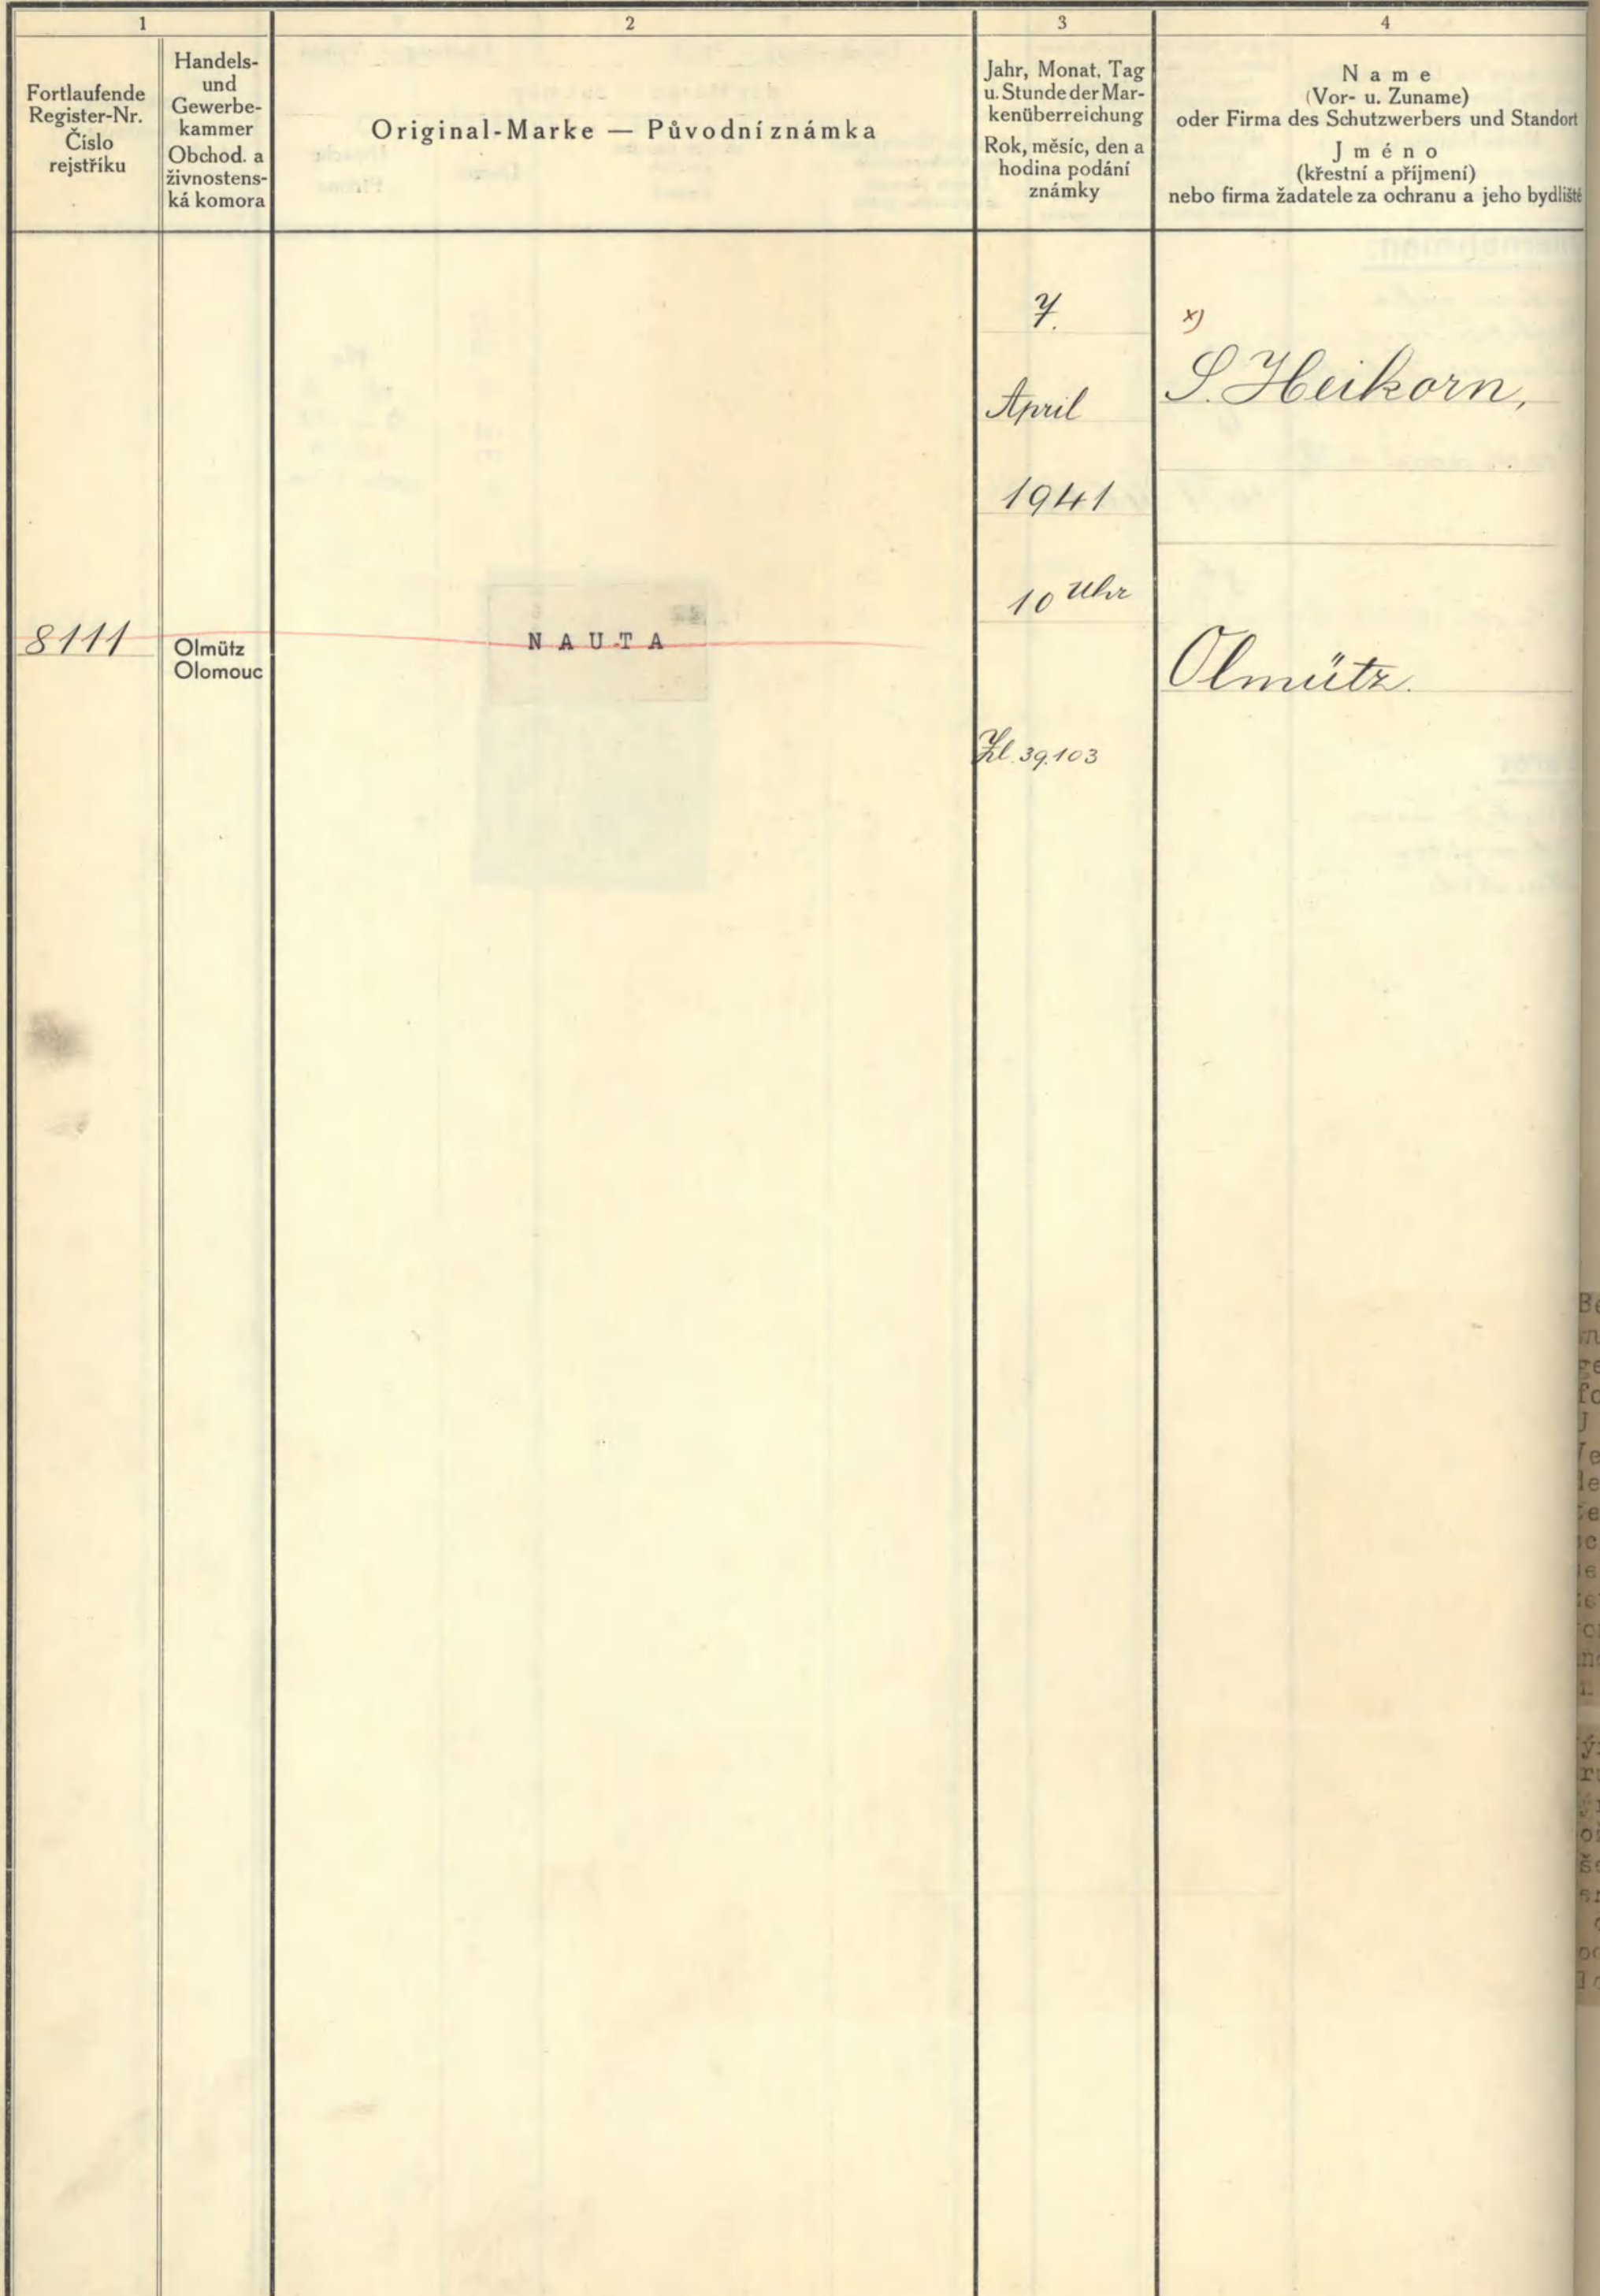 1
2
3
4
Fortlaufende
Register-Nr.
Číslo
rejstříku
Handels-
und
Gewerbe-
kammer
Obchod. a
živnostens-
ká komora
Original-Marke — Původní známka
Jahr, Monat, Tag
u. Stunde der Mar-
kenüberreichung
Rok, měsíc, den a
hodina podání
známky
Name
(Vor- u. Zuname)
oder Firma des Schutzwerbers und Standort
Jméno
(křestní a příjmení)
nebo firma žadatele za ochranu a jeho bydliště
8111
Olmütz
Olomouc
NAUTA
7.
April
1941
10 Uhr
Zl. 39.103
x)
S. Heikorn,
Olmütz.